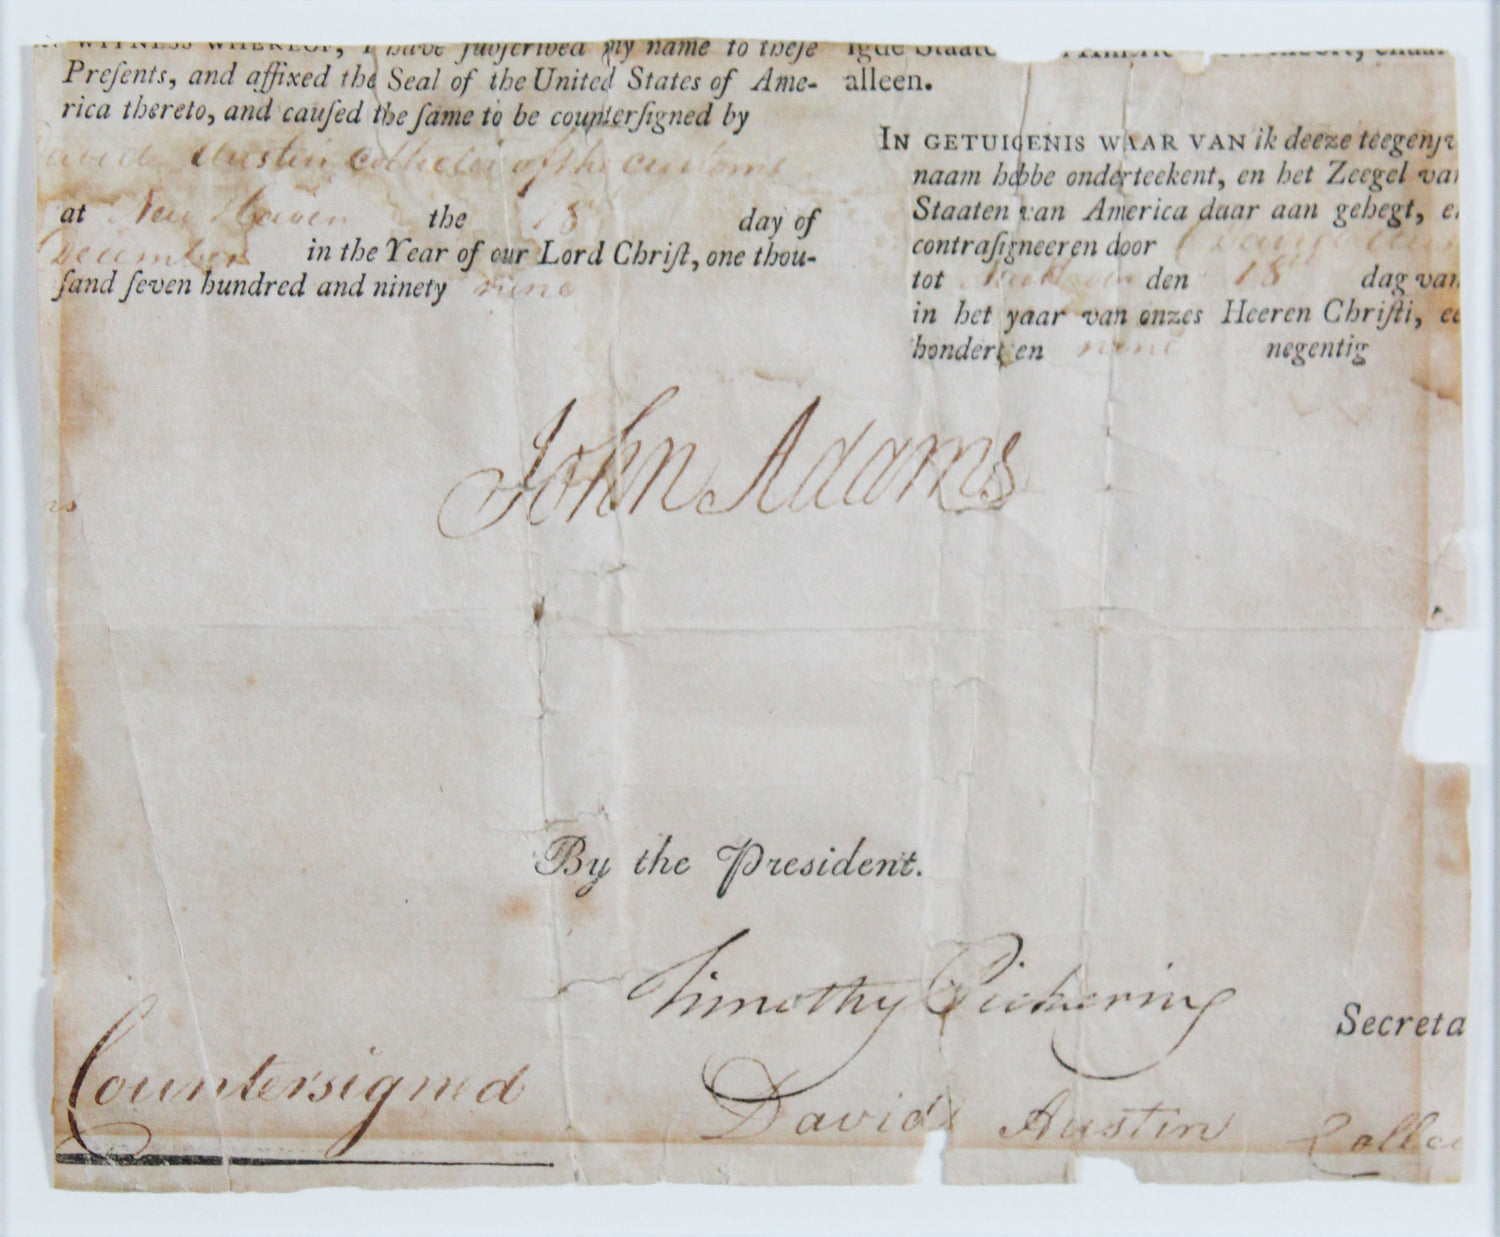 IN WITNESS WHEREOF, I have ſubſcribed my name to theſe
Preſents, and affixed the Seal of the United States of Ame-
rica thereto, and cauſed the ſame to be counterſigned by
David Austin Collector of the customs
at New Haven the 18 day of
December in the Year of our Lord Chriſt, one thou-
ſand ſeven hundred and ninety nine
alleen.
IN GETUIGENIS WAAR VAN ik deeze
naam hebbe onderteekent, en het Zeegel van
Staaten van America daar aan gehegt, en
contraſigneeren door
tot den 18 dag van
in het yaar van onzes Heeren Chriſti,
hondert en nine negentig
John Adams
By the President.
Timothy Pickering
Secreta
Countersigned
David Austin Collec